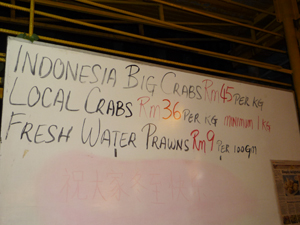 INDONESIA BIG CRABS Rm45 PER KG
LOCAL CRABS Rm36 PER KG minimum 1 KG
FRESH WATER PRAWNS Rm9 PER 100Gm